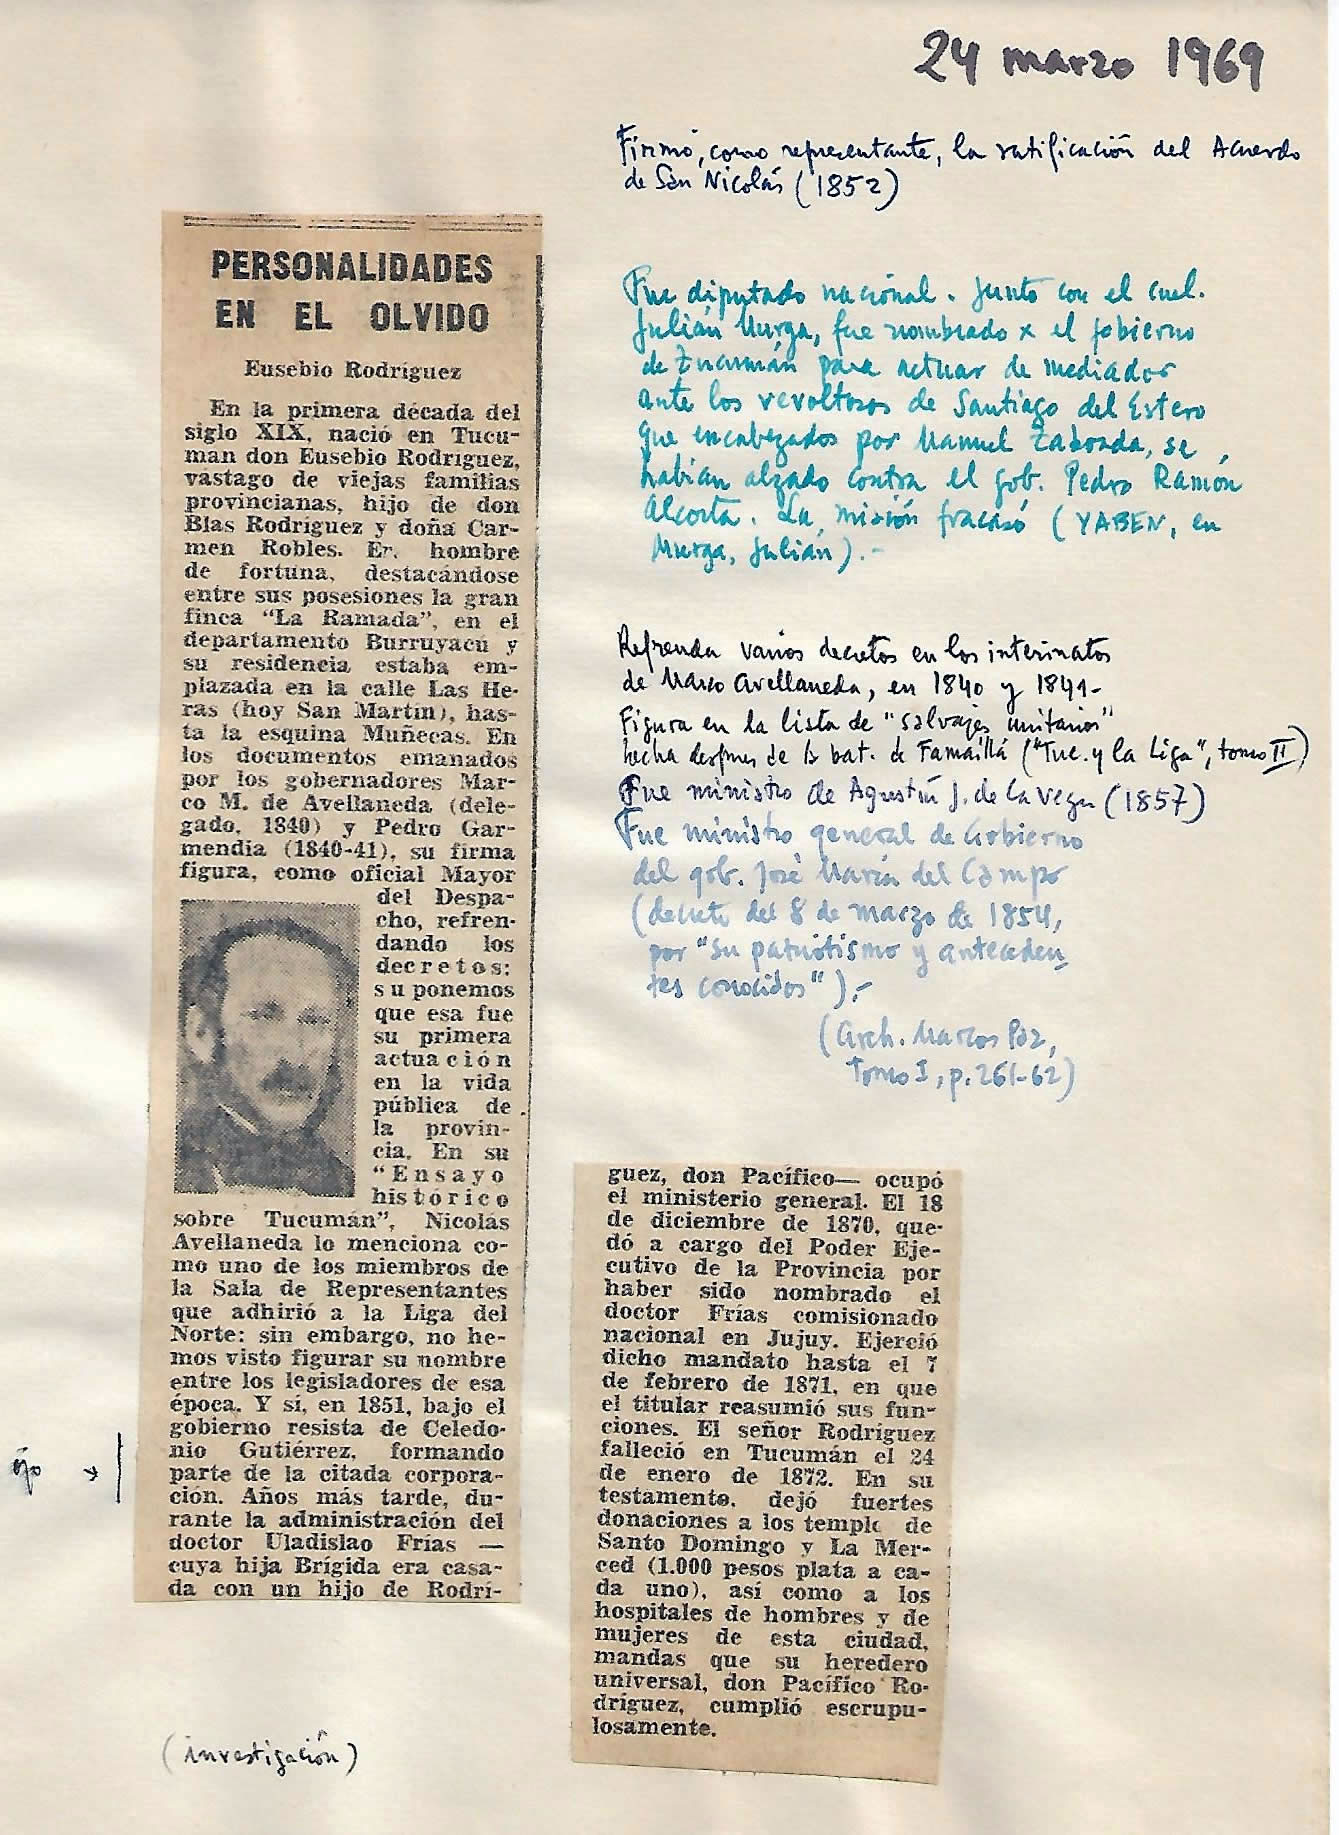 24 marzo 1969
Firmó, como representante, la ratificación del Acuerdo
de San Nicolás (1852)
Fue diputado nacional. Junto con el cnel.
Julián Murga, fue nombrado x el gobierno
de Tucumán para actuar de mediador
ante los revoltosos de Santiago del Estero
que encabezados por Manuel Taboada, se
habían alzado contra el gob. Pedro Ramón
Alcorta. La misión fracasó (YABEN, en
Murga, Julián).-
Refrenda varios decretos en los interinatos
de Marco Avellaneda, en 1840 y 1841-
Figura en la lista de "salvajes unitarios"
hecha despues de la bat. de Famaillá ("Tuc. y la Liga", tomo II)
Fue ministro de Agustín J. de la Vega (1857)
Fue ministro general de Gobierno
del gob. José María del Campo
(decreto del 8 de marzo de 1854,
por "su patriotismo y anteceden_
tes conocidos").-
(Arch. Marcos Paz,
Tomo I, p. 261-62)
PERSONALIDADES
EN EL OLVIDO
Eusebio Rodríguez
En la primera década del
siglo XIX, nació en Tucu-
mán don Eusebio Rodríguez,
vástago de viejas familias
provincianas, hijo de don
Blas Rodríguez y doña Car-
men Robles. Er. hombre
de fortuna, destacándose
entre sus posesiones la gran
finca "La Ramada", en el
departamento Burruyacú y
su residencia estaba em-
plazada en la calle Las He-
ras (hoy San Martín), has-
ta la esquina Muñecas. En
los documentos emanados
por los gobernadores Mar-
co M. de Avellaneda (dele-
gado, 1840) y Pedro Gar-
mendia (1840-41), su firma
figura, como oficial Mayor
del Despa-
cho, refren-
dando los
decretos:
suponemos
que esa fue
su primera
actuación
en la vida
pública de
la provin-
cia. En su
"Ensayo
histórico
sobre Tucumán", Nicolás
Avellaneda lo menciona co-
mo uno de los miembros de
la Sala de Representantes
que adhirió a la Liga del
Norte: sin embargo, no he-
mos visto figurar su nombre
entre los legisladores de esa
época. Y sí, en 1851, bajo el
gobierno resista de Celedo-
nio Gutiérrez, formando
parte de la citada corpora-
ción. Años más tarde, du-
rante la administración del
doctor Uladislao Frías —
cuya hija Brígida era casa-
da con un hijo de Rodrí-
ojo
guez, don Pacífico— ocupó
el ministerio general. El 18
de diciembre de 1870, que-
dó a cargo del Poder Eje-
cutivo de la Provincia por
haber sido nombrado el
doctor Frías comisionado
nacional en Jujuy. Ejerció
dicho mandato hasta el 7
de febrero de 1871, en que
el titular reasumió sus fun-
ciones. El señor Rodríguez
falleció en Tucumán el 24
de enero de 1872. En su
testamento, dejó fuertes
donaciones a los templ de
Santo Domingo y La Mer-
ced (1.000 pesos plata a ca-
da uno), así como a los
hospitales de hombres y de
mujeres de esta ciudad,
mandas que su heredero
universal, don Pacífico Ro-
dríguez, cumplió escrupu-
losamente.
(investigación)